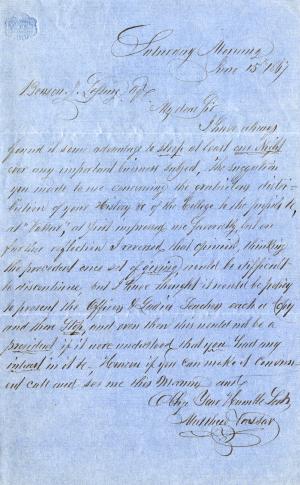 Saturday Morning
June 15th 1867
Benson J. Lossing Esq
My dear Sir
I have always
found it some advantage to sleep at least one Night
over any important business subject, The suggestion
you made to me concerning the gratuitous distri-
bution of your History &c of the College to the pupils &c,
at "Vassar", at first impressed me favorably but on
further reflection I reversed that opinion, thinking
the precedent once set of giving would be difficult
to discontinue, but I have thought it would be policy
to present the Officers & Lady Teachers each a Copy
and then Stop, and even then this would not be a
president if it were understood that you had any
interest in it &c, However if you can make it conven-
ient call and see me this Morning and
Oblige Your Humble Servt
Matthew Vassar